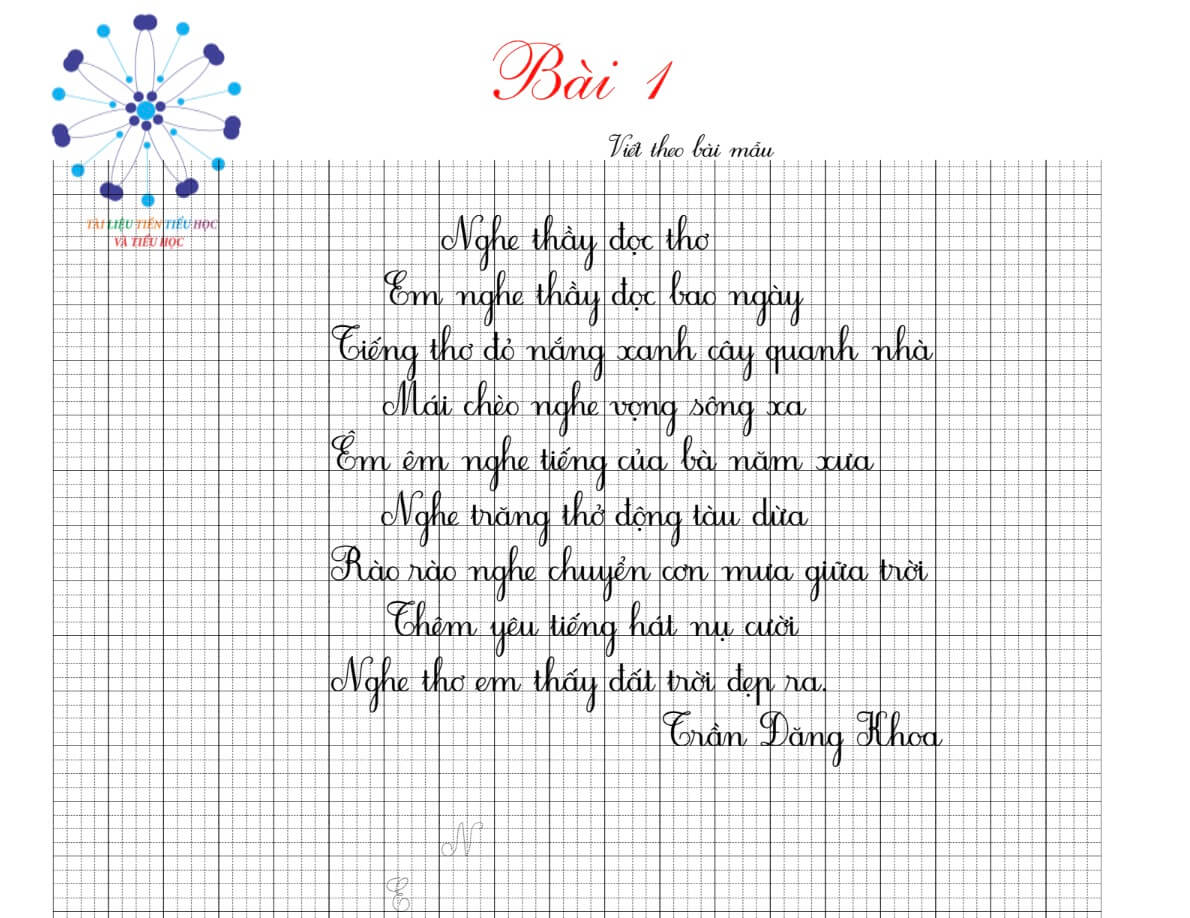 Bài 1
Viết theo bài mẫu
TÀI LIỆU TIỀN TIỂU HỌC
VÀ TIỂU HỌC
Nghe thầy đọc thơ
Em nghe thầy đọc bao ngày
Tiếng thơ đỏ nắng xanh cây quanh nhà
Mái chèo nghe vọng sông xa
Êm êm nghe tiếng của bà năm xưa
Nghe trăng thở động tàu dừa
Rào rào nghe chuyển cơn mưa giữa trời
Thêm yêu tiếng hát nụ cười
Nghe thơ em thấy đất trời đẹp ra.
Trần Đăng Khoa
N
E